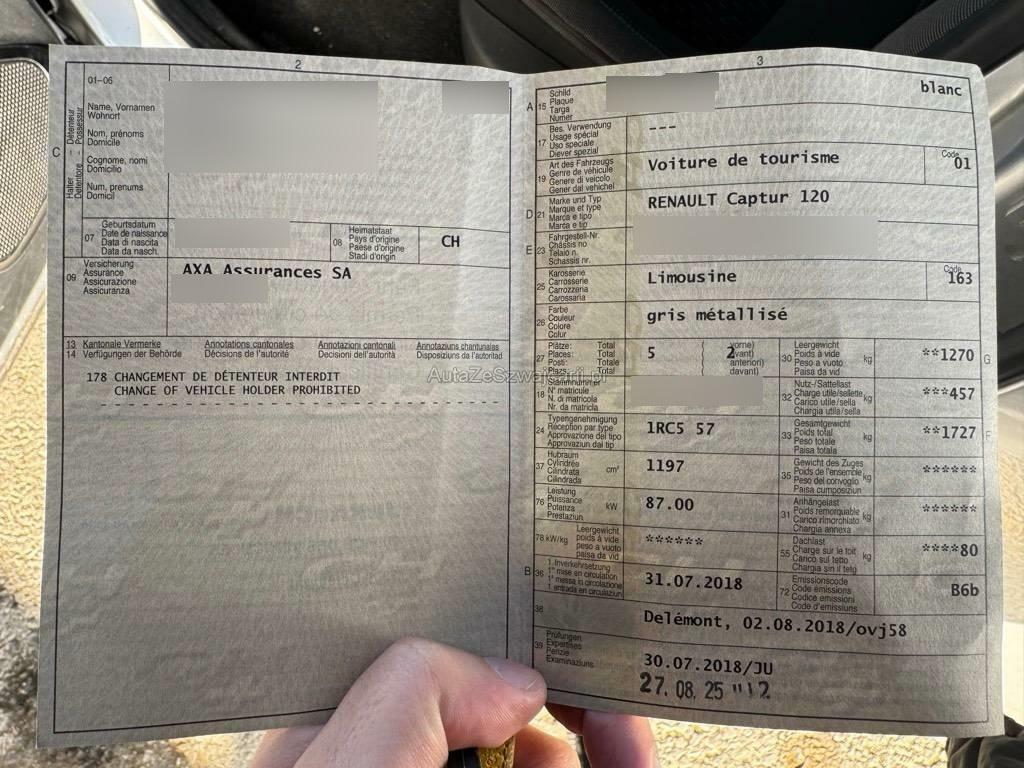 2
01-06
Name, Vornamen
Wohnort
Nom, prénoms
Domicile
Cognome, nomi
Domicilio
Num, prenums
Domicil
C
Halter - Détenteur
Detentore - Possessur
07
Geburtsdatum
Date de naissance
Data di nascita
Data da nasch.
08
Heimatstaat
Pays d'origine
Paese d'origine
Stadi d'origin
CH
09
Versicherung
Assurance
Assicurazione
Assicuranza
AXA Assurances SA
13 Kantonale Vermerke Annotations cantonales Annotazioni cantonali Annotaziuns chantunalas
14 Verfügungen der Behörde Décisions de l'autorité Decisioni dell'autorità Disposiziuns da l'autoritad
178 CHANGEMENT DE DÉTENTEUR INTERDIT
CHANGE OF VEHICLE HOLDER PROHIBITED
AutaZeSzwajcarii.pl
3
A 15
Schild
Plaque
Targa
Numer
blanc
17
Bes. Verwendung
Usage spécial
Uso speciale
Diever spezial
---
19
Art des Fahrzeugs
Genre de véhicule
Genere di veicolo
Gener dal vehichel
Voiture de tourisme
Code
01
D 21
Marke und Typ
Marque et type
Marca e tipo
Marca e tip
RENAULT Captur 120
E 23
Fahrgestell-Nr.
Châssis no
Telaio n.
Schassis nr.
25
Karosserie
Carrosserie
Carrozzeria
Carossaria
Limousine
Code
163
26
Farbe
Couleur
Colore
Colur
gris métallisé
27
Plätze: Total
Places: Total
Posti: Totale
Plazs: Total
5
2
vorne)
avant)
anteriori)
davant)
30
Leergewicht
Poids à vide
Peso a vuoto
Paisa da vid
kg
**1270
G
18
Stammnummer
N° matricule
N. di matricola
Nr. da matricla
32
Nutz-/Sattellast
Charge utile/sellette
Carico utile/sella
Chargia utila/sella
kg
***457
24
Typengenehmigung
Réception par type
Approvazione del tipo
Approvaziun dal tip
1RC5 57
33
Gesamtgewicht
Poids total
Peso totale
Paisa totala
kg
**1727
F
37
Hubraum
Cylindrée
Cilindrata
Cilindrada
cm³
1197
35
Gewicht des Zuges
Poids de l'ensemble
Peso del convoglio
Paisa cumposiziun
kg
******
76
Leistung
Puissance
Potenza
Prestaziun
kW
87.00
31
Anhängelast
Poids remorquable
Carico rimorchiato
Chargia annexa
kg
******
78 kW/kg
Leergewicht
poids à vide
peso a vuoto
paisa da vid
******
55
Dachlast
Charge sur le toit
Carico sul tetto
Chargia sin il tetg
kg
****80
B 36
1. Inverkehrsetzung
1re mise en circulation
1a messa in circolazione
1. entrada en circulaziun
31.07.2018
72
Emissionscode
Code émissions
Codice emissioni
Code d'emissiuns
B6b
38
Delémont, 02.08.2018/ovj58
39
Prüfungen
Expertises
Perizie
Examinaziuns
30.07.2018/JU
27. 08. 25